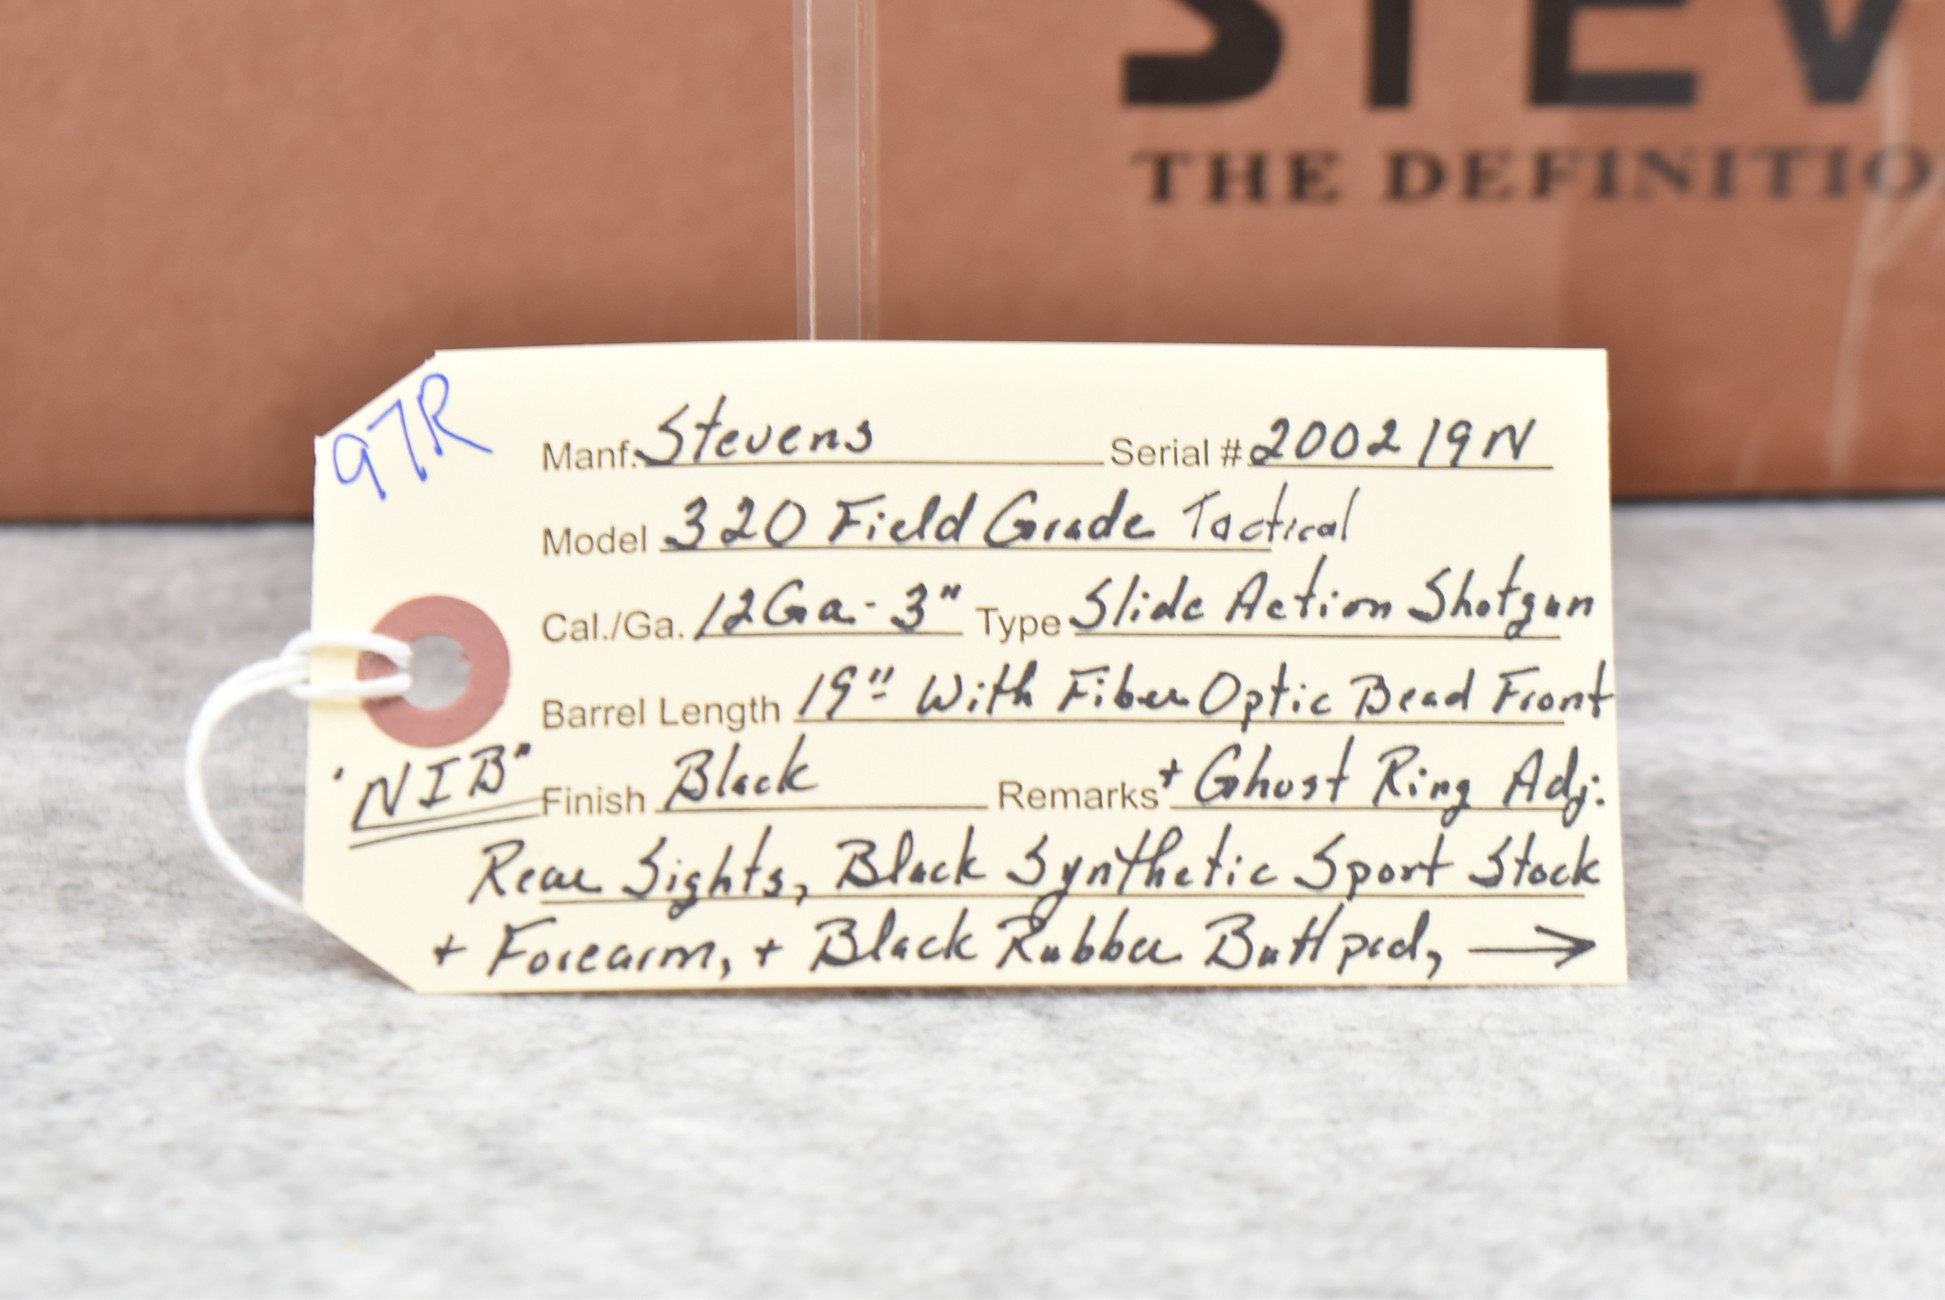 STEV
THE DEFINITIO
97R
Manf. Stevens Serial # 200219N
Model 320 Field Grade Tactical
Cal./Ga. 12Ga. - 3" Type Slide Action Shotgun
Barrel Length 19" With Fiber Optic Bead Front
"NIB" Finish Black Remarks + Ghost Ring Adj.
Rear Sights, Black Synthetic Sport Stock
+ Forearm, + Black Rubber Buttpad, →